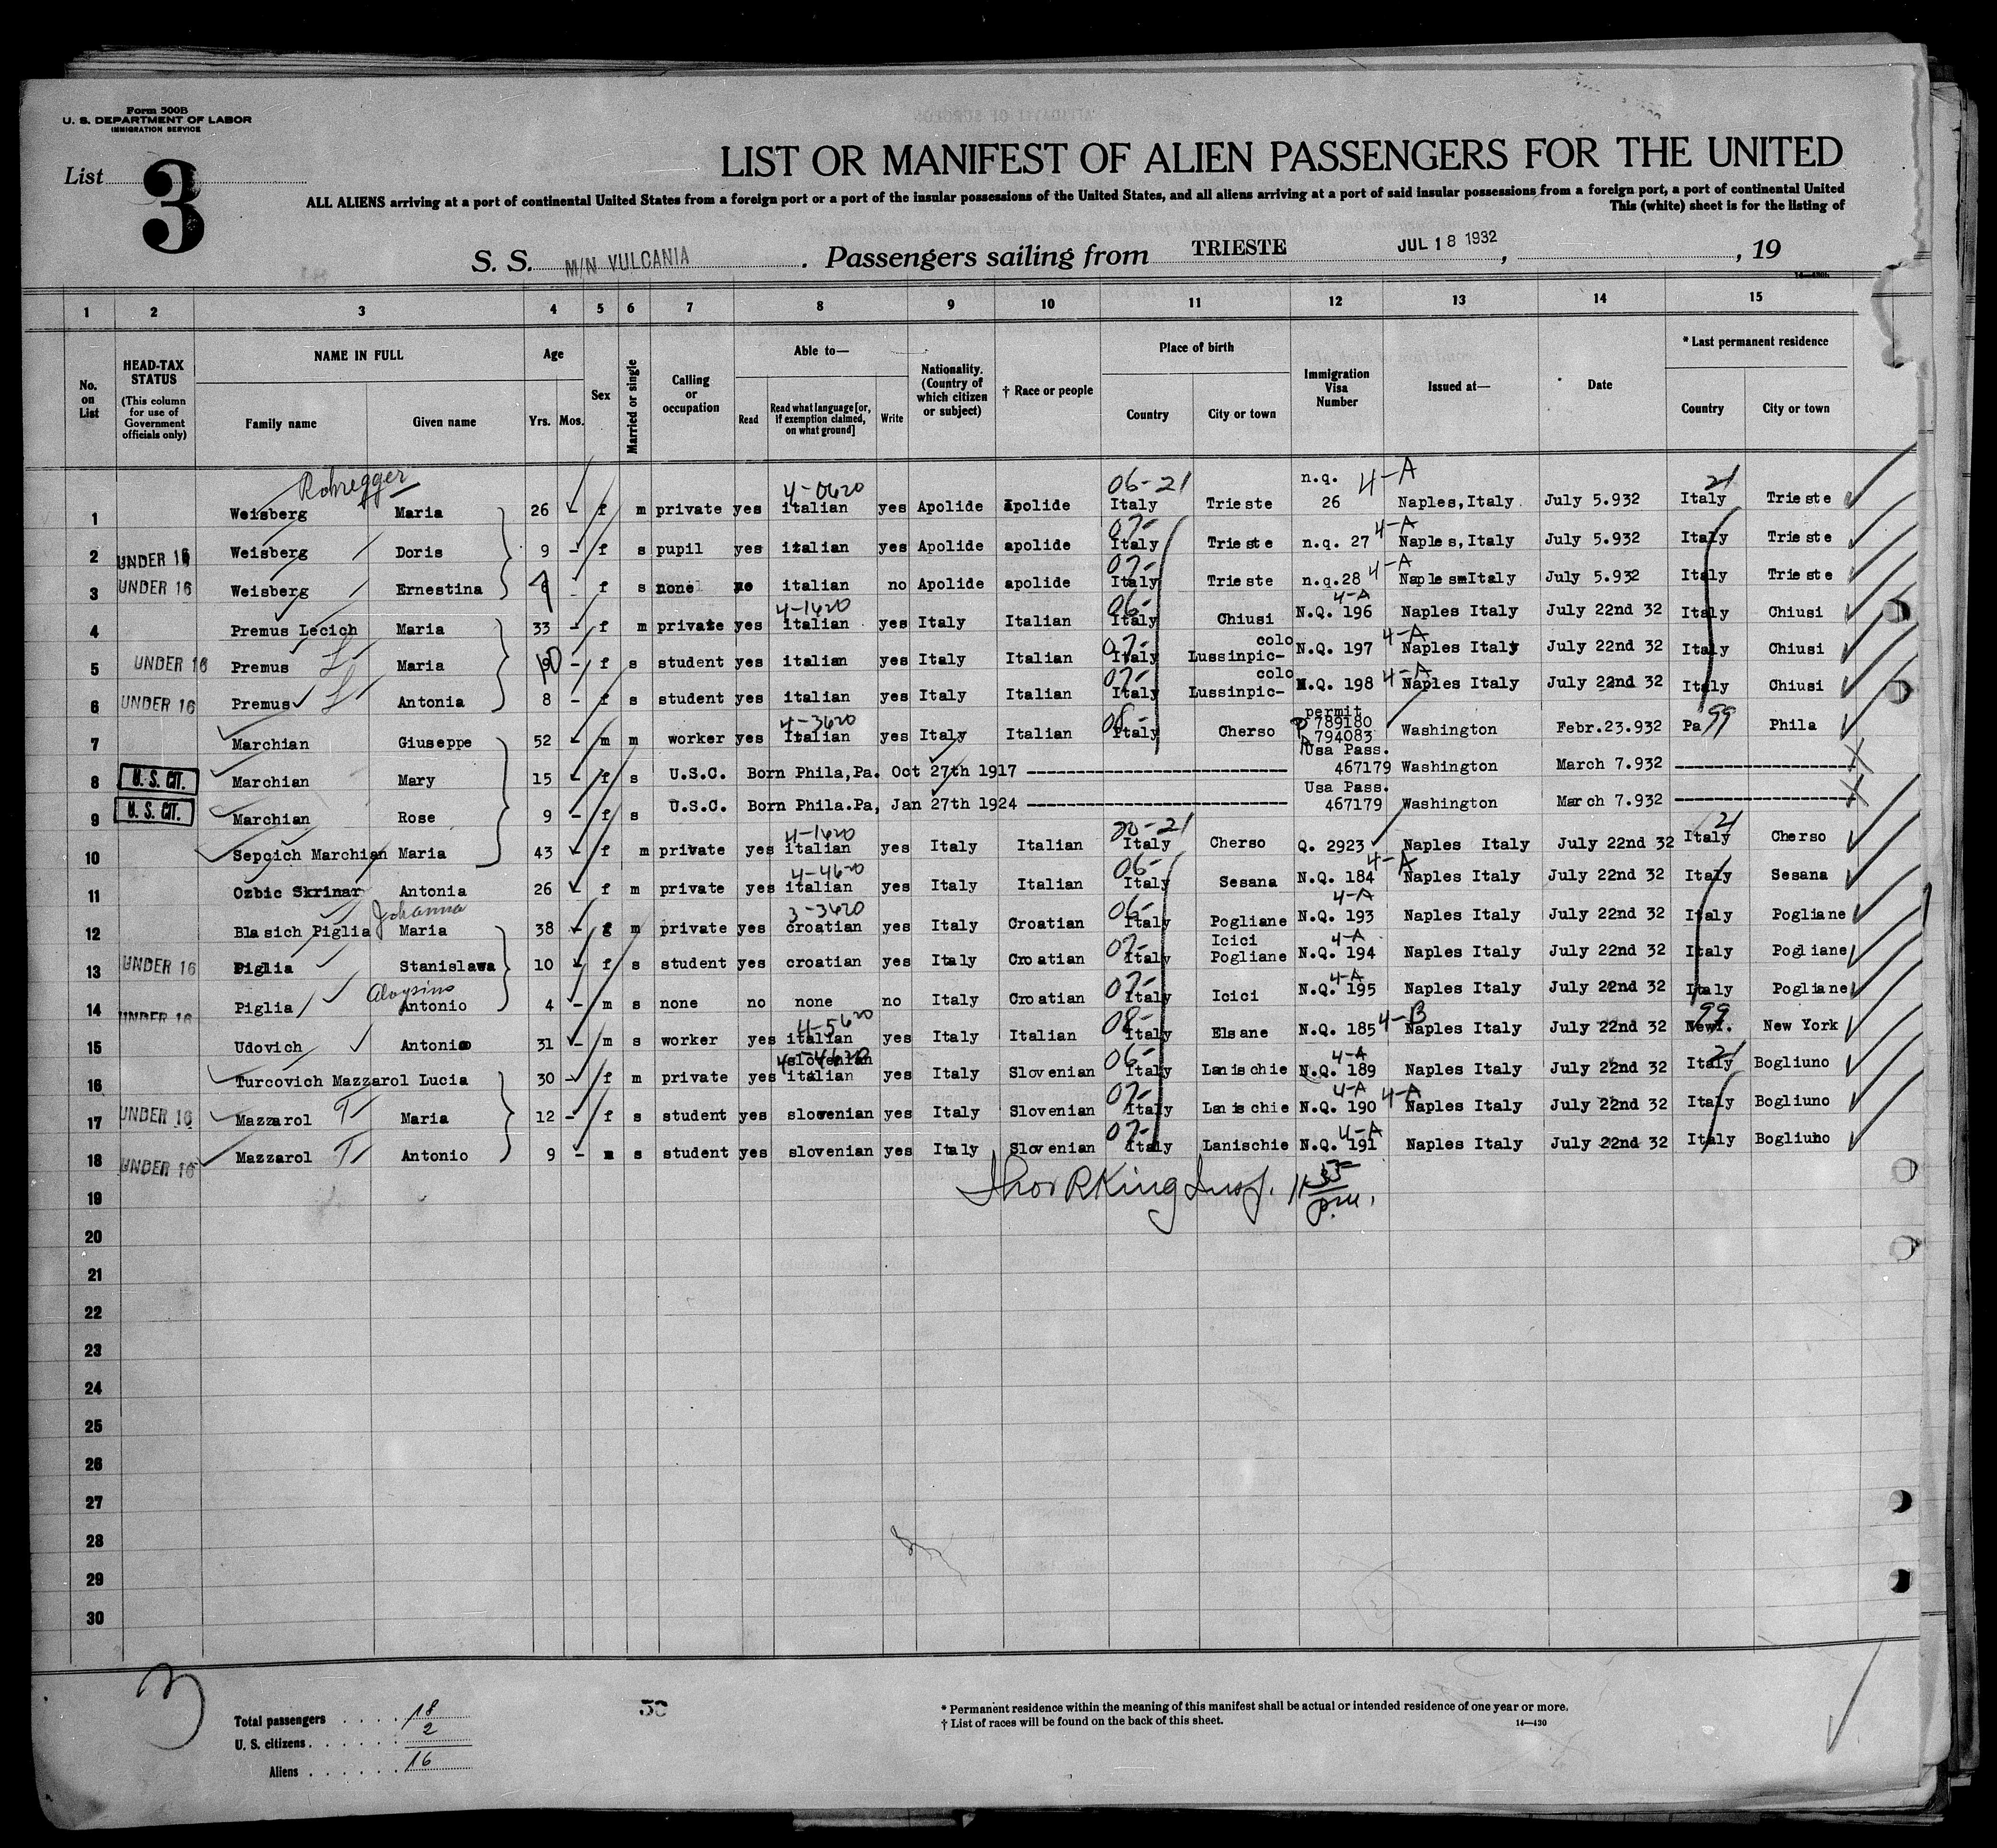 Form 500B
U. S. DEPARTMENT OF LABOR
IMMIGRATION SERVICE
List 3
LIST OR MANIFEST OF ALIEN PASSENGERS FOR THE UNITED
ALL ALIENS arriving at a port of continental United States from a foreign port or a port of the insular possessions of the United States, and all aliens arriving at a port of said insular possessions from a foreign port, a port of continental United
This (white) sheet is for the listing of
S. S. M/N VULCANIA. Passengers sailing from TRIESTE JUL 18 1932, , 19
1 2 3 4 5 6 7 8 9 10 11 12 13 14 15
No. on List
HEAD-TAX STATUS
(This column for use of Government officials only)
NAME IN FULL
Family name Given name
Age
Yrs. Mos.
Sex
Married or single
Calling or occupation
Able to—
Read
Read what language [or, if exemption claimed, on what ground]
Write
Nationality. (Country of which citizen or subject)
† Race or people
Place of birth
Country City or town
Immigration Visa Number
Issued at—
Date
* Last permanent residence
Country City or town
Rohregger 4-0620 06-21 n.q. 4-A 21
1 Weisberg Maria 26 - f m private yes italian yes Apolide apolide Italy Trieste 26 Naples, Italy July 5.932 Italy Trieste
07- 4-A
2 UNDER 16 Weisberg Doris 9 - f s pupil yes italian yes Apolide apolide Italy Trieste n.q. 27 Naples, Italy July 5.932 Italy Trieste
07- 4-A
3 UNDER 16 Weisberg Ernestina f s none no italian no Apolide apolide Italy Trieste n.q.28 Naples Italy July 5.932 Italy Trieste
4-1620 06- 4-A
4 Premus Lecich Maria 33 - f m private yes italian yes Italy Italian Italy Chiusi N.Q. 196 Naples Italy July 22nd 32 Italy Chiusi
07- colo 4-A
5 UNDER 16 Premus L Maria 10 - f s student yes italian yes Italy Italian Italy Lussinpic- N.Q. 197 Naples Italy July 22nd 32 Italy Chiusi
07- colo 4-A
6 UNDER 16 Premus L Antonia 8 - f s student yes italian yes Italy Italian Italy Lussinpic- N.Q. 198 Naples Italy July 22nd 32 Italy Chiusi
4-3620 08- permit P 789180 99
7 Marchian Giuseppe 52 - m m worker yes Italian yes Italy Italian Italy Cherso 794083 Washington Febr.23.932 Pa Phila
Usa Pass.
8 U. S. CIT. Marchian Mary 15 - f s U.S.C. Born Phila,Pa. Oct 27th 1917 467179 Washington March 7.932
Usa Pass.
9 U. S. CIT. Marchian Rose 9 - f s U.S.C. Born Phila.Pa, Jan 27th 1924 467179 Washington March 7.932
4-1620 20-21 21
10 Sepcich Marchian Maria 43 - f m private yes italian yes Italy Italian Italy Cherso Q. 2923 Naples Italy July 22nd 32 Italy Cherso
4-4620 06- 4-A
11 Ozbic Skrinar Antonia 26 - f m private yes italian yes Italy Italian Italy Sesana N.Q. 184 Naples Italy July 22nd 32 Italy Sesana
Johanna 3-3620 06- 4-A
12 Blasich Piglia Maria 38 - f m private yes croatian yes Italy Croatian Italy Pogliane N.Q. 193 Naples Italy July 22nd 32 Italy Pogliane
07- Icici 4-A
13 UNDER 16 Piglia Stanislawa 10 - f s student yes croatian yes Italy Croatian Italy Pogliane N.Q. 194 Naples Italy July 22nd 32 Italy Pogliane
Aloysino 07- 4-A
14 UNDER 16 Piglia Antonio 4 - m s none no none no Italy Croatian Italy Icici N.Q. 195 Naples Italy July 22nd 32 Italy Pogliane
4-5620 08- 4-B 99
15 Udovich Antonio 31 - m s worker yes italian yes Italy Italian Italy Elsane N.Q. 185 Naples Italy July 22nd 32 NewY. New York
slovenian 4-4620 06- 4-A 21
16 Turcovich Mazzarol Lucia 30 - f m private yes italian yes Italy Slovenian Italy Lanischie N.Q. 189 Naples Italy July 22nd 32 Italy Bogliuno
07- 4-A 4-A
17 UNDER 16 Mazzarol T Maria 12 - f s student yes slovenian yes Italy Slovenian Italy Lanischie N.Q. 190 Naples Italy July 22nd 32 Italy Bogliuno
07- 4-A
18 UNDER 16 Mazzarol T Antonio 9 - m s student yes slovenian yes Italy Slovenian Italy Lanischie N.Q. 191 Naples Italy July 22nd 32 Italy Bogliuno
19 RKing Insp. 11 35 p.m.
20
21
22
23
24
25
26
27
28
29
30
3
Total passengers 18
U. S. citizens 2
Aliens 16
* Permanent residence within the meaning of this manifest shall be actual or intended residence of one year or more.
† List of races will be found on the back of this sheet.
14—430